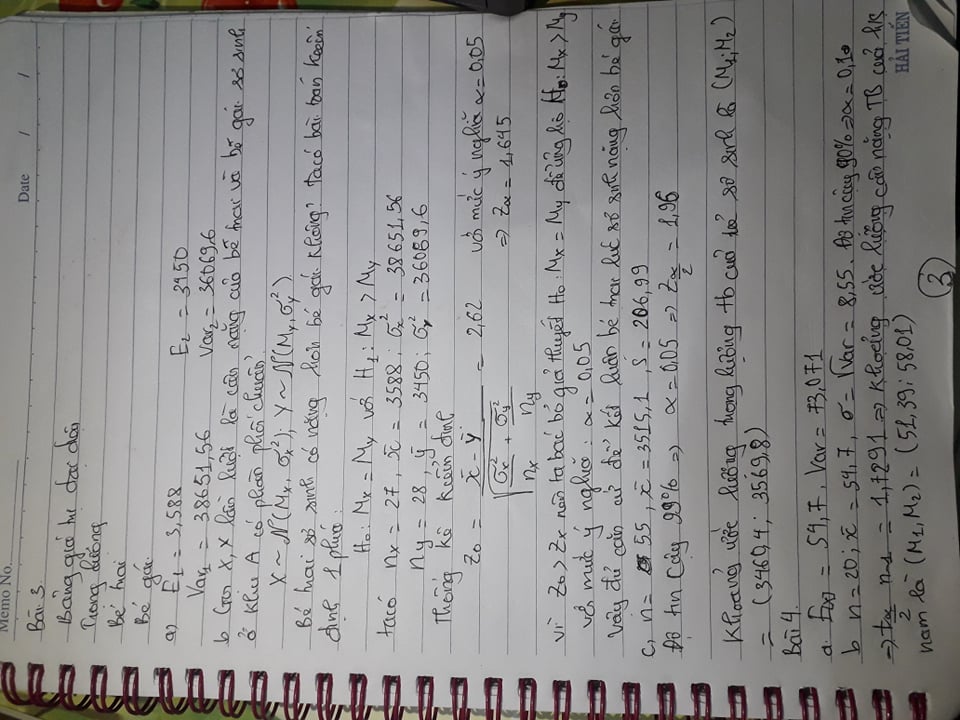 Memo No.
Date / /
Bài 3
Bảng giá trị đại diện
Trọng lượng
Bé trai
Bé gái
a) E₁ = 3,588 E₂ = 3450
Var₁ = 38651,56 Var₂ = 36069,6
b Gọi X, X lần lượt là cân nặng của bé trai và bé gái sơ sinh
ở khu A có phân phối chuẩn
X ~ N(Mx, σx²), Y ~ N(My, σy²)
Bé trai sơ sinh có nặng hơn bé gái không? ta có bài toán kiểm
định 1 phía:
H₀: Mx = My với H₁: Mx > My
ta có nx = 27, x̄ = 3588; σx² = 38651,56
ny = 28, ȳ = 3450; σy² = 36069,6
Thống kê kiểm định
Z₀ = (x̄ - ȳ) / √(σx²/nx + σy²/ny) = 2,62 với mức ý nghĩa α = 0,05
⇒ Zα = 1,645
vì Z₀ > Zα nên ta bác bỏ giả thuyết H₀: Mx = My để ủng hộ H₁: Mx > My
với mức ý nghĩa: α = 0,05
Vậy đủ căn cứ để kết luận bé trai lúc sơ sinh nặng hơn bé gái
c, n = 55, x̄ = 3515,1, S = 206,99
Độ tin cậy 99% ⇒ α = 0,05 ⇒ Zα/2 = 1,96
Khoảng ước lượng trọng lượng tb của trẻ sơ sinh là (M₁; M₂)
= (3460,4; 3569,8)
Bài 4.
a. E(x) = 54,7, Var = 73,071
b n = 20; x̄ = 54,7, σ = √Var = 8,55. Độ tin cậy 90% ⇒ α = 0,10
⇒ tα/2 n-1 = 1,7291 ⇒ Khoảng ước lượng cân nặng TB của h/s
nam là (M₁, M₂) = (51,39; 58,01)
3
HẢI TIẾN